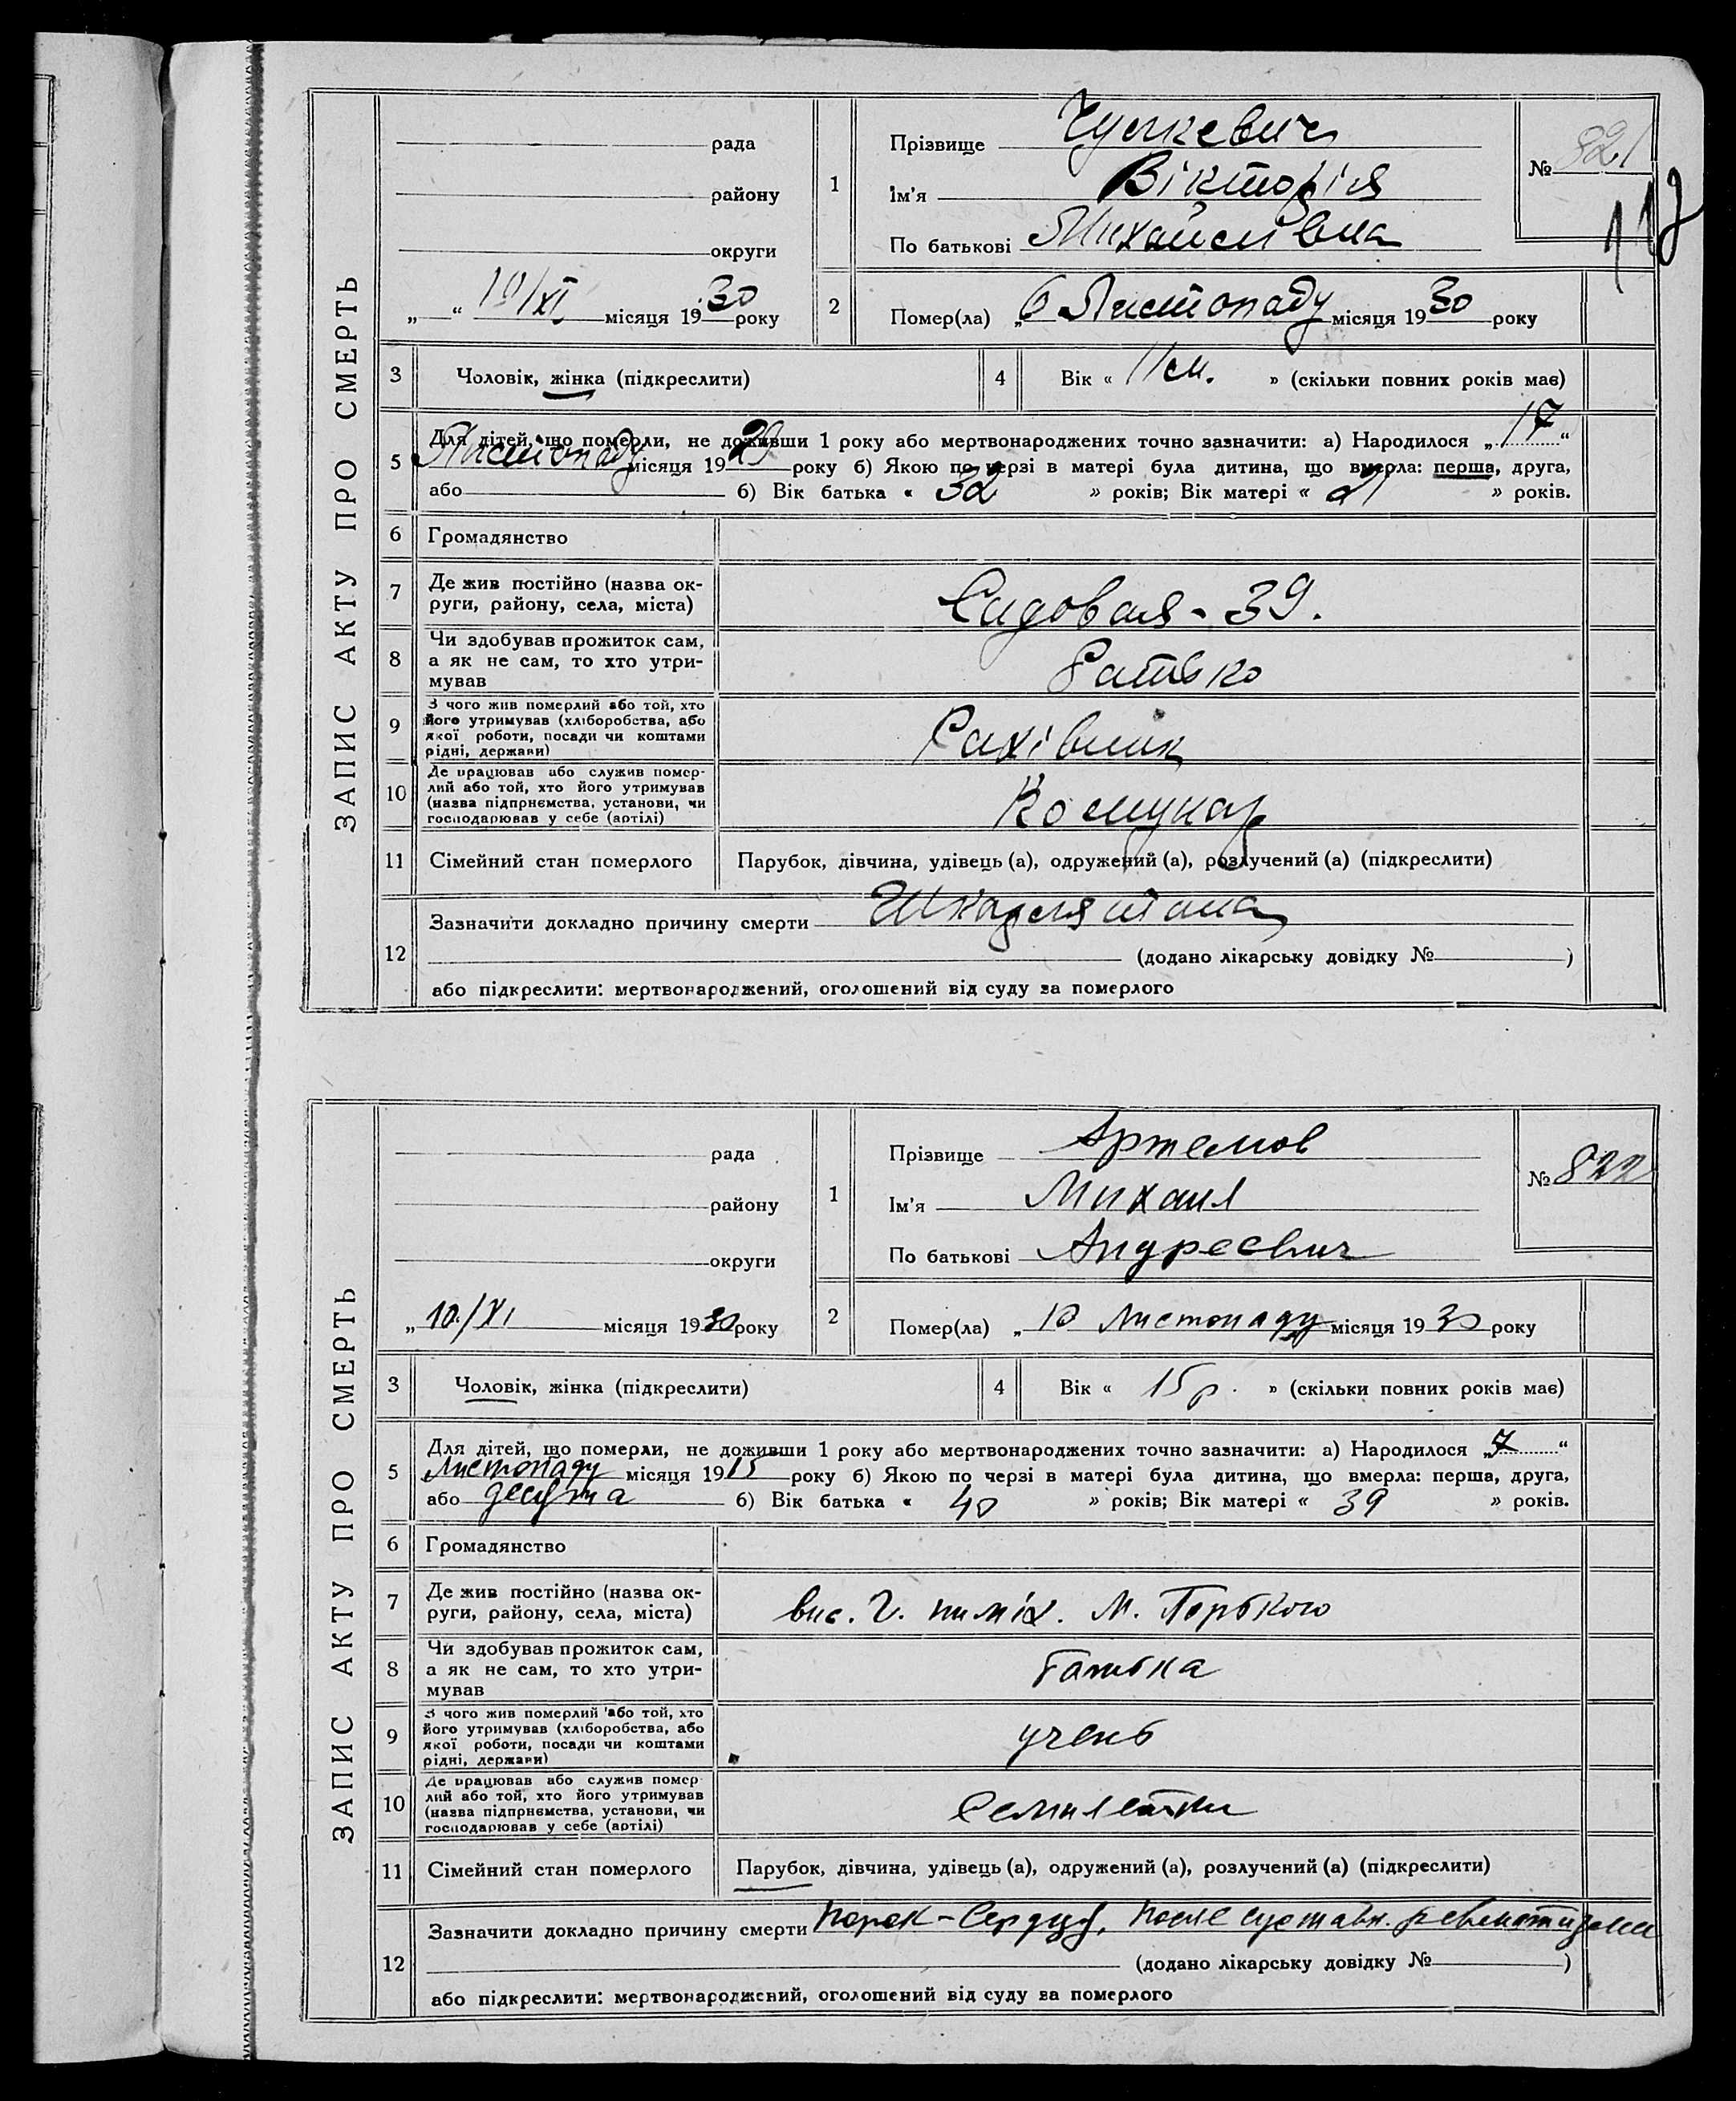 ЗАПИС АКТУ ПРО СМЕРТЬ
рада
району
округи
„ “ 10/XI місяця 1930 року
1
Прізвище
Ім'я Вікторія
По батькові Михайлівна
№ 821
117
2
Помер(ла) „6 Листопаду місяця 1930 року
3 Чоловік, жінка (підкреслити)
4 Вік « 11 м. » (скільки повних років має)
5
Для дітей, що померли, не доживши 1 року або мертвонароджених точно зазначити: а) Народилося „17“
Листопаду місяця 1929 року б) Якою по черзі в матері була дитина, що вмерла: перша, друга,
або б) Вік батька « 32 » років; Вік матері « 21 » років.
6 Громадянство
7 Де жив постійно (назва ок-
руги, району, села, міста)
Садовая - 39.
8 Чи здобував прожиток сам,
а як не сам, то хто утри-
мував
Батько
9 З чого жив померлий або той, хто
його утримував (хліборобства, або
якої роботи, посади чи коштами
рідні, держави)
Рахівник
10 Де працював або служив помер-
лий або той, хто його утримував
(назва підприємства, установи, чи
господарював у себе (артілі)
Комунар
11 Сімейний стан померлого
Парубок, дівчина, удівець (а), одружений (а), розлучений (а) (підкреслити)
12
Зазначити докладно причину смерти Шкарлятина
(додано лікарську довідку № )
або підкреслити: мертвонароджений, оголошений від суду за померлого
ЗАПИС АКТУ ПРО СМЕРТЬ
рада
району
округи
„10/XI місяця 1930 року
1
Прізвище Артемов
Ім'я Михаил
По батькові Андреевич
№ 822
2
Помер(ла) „ 10 Листопаду місяця 1930 року
3 Чоловік, жінка (підкреслити)
4 Вік « 15 р. » (скільки повних років має)
5
Для дітей, що померли, не доживши 1 року або мертвонароджених точно зазначити: а) Народилося „7“
Листопаду місяця 1915 року б) Якою по черзі в матері була дитина, що вмерла: перша, друга,
або десята б) Вік батька « 40 » років; Вік матері « 39 » років.
6 Громадянство
7 Де жив постійно (назва ок-
руги, району, села, міста)
М. Горького
8 Чи здобував прожиток сам,
а як не сам, то хто утри-
мував
батька
9 З чого жив померлий або той, хто
його утримував (хліборобства, або
якої роботи, посади чи коштами
рідні, держави)
учень
10 Де працював або служив помер-
лий або той, хто його утримував
(назва підприємства, установи, чи
господарював у себе (артілі)
Семилетки
11 Сімейний стан померлого
Парубок, дівчина, удівець (а), одружений (а), розлучений (а) (підкреслити)
12
Зазначити докладно причину смерти Порок - Сердца, после суставн. ревматизма
(додано лікарську довідку № )
або підкреслити: мертвонароджений, оголошений від суду за померлого